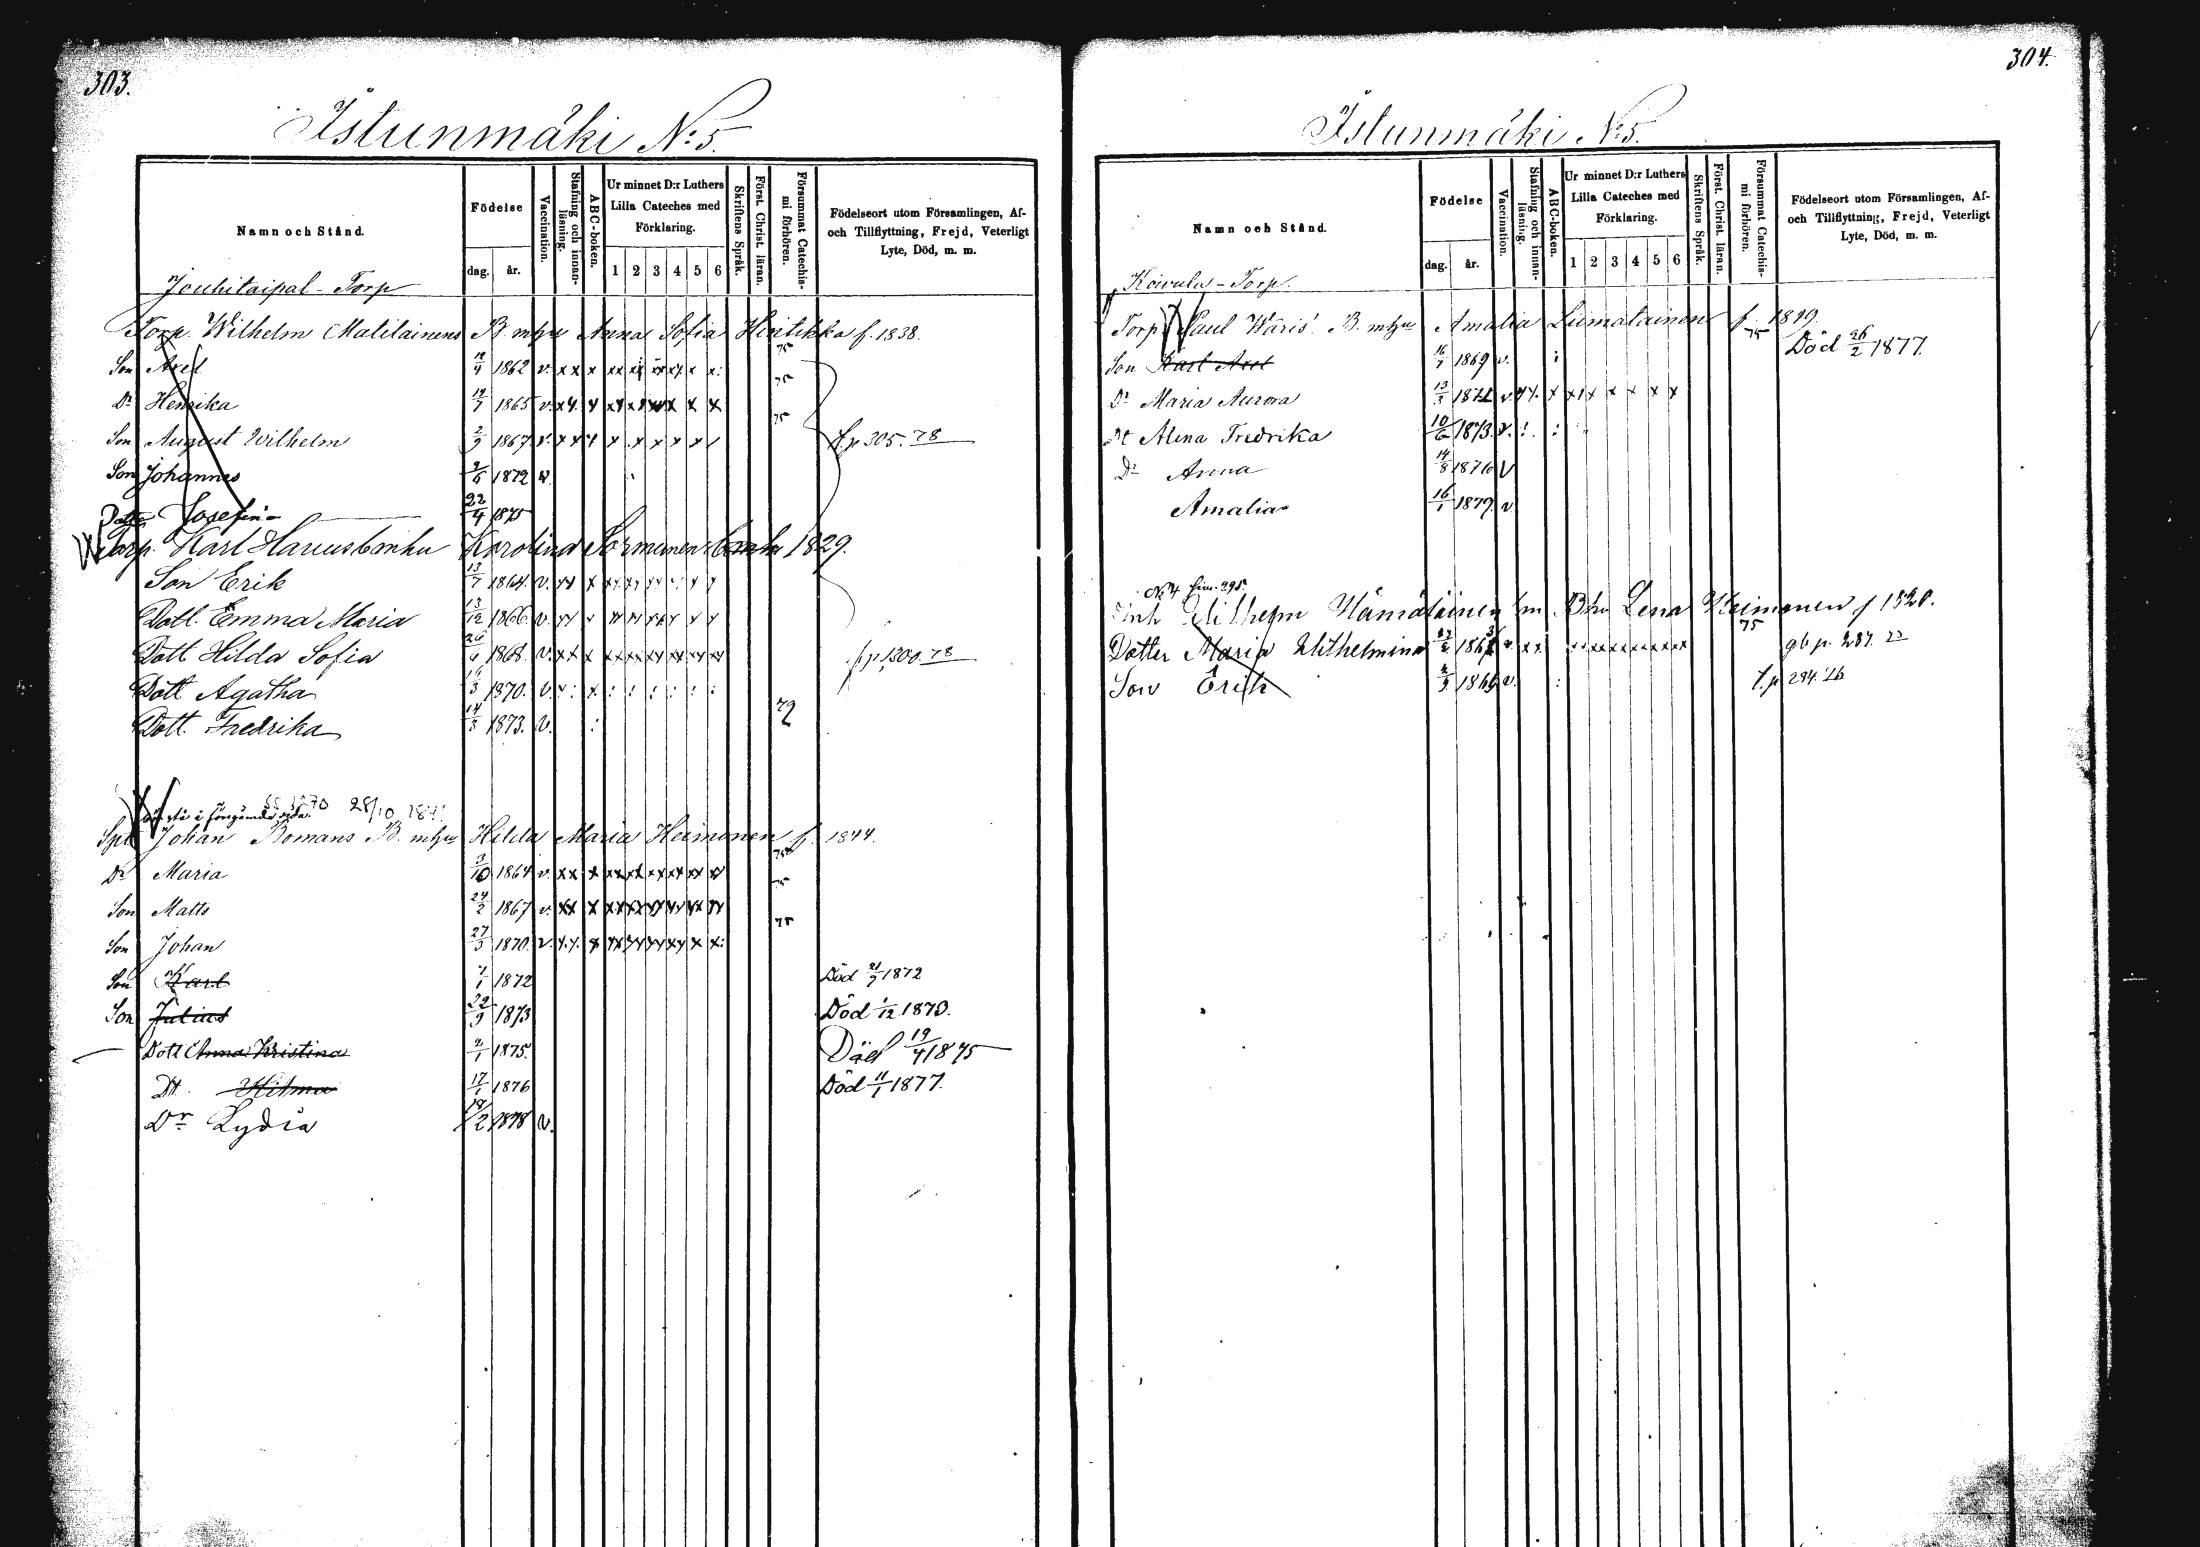 303.
Istunmäki No: 5.
Namn och Stånd.
Födelse
dag. år.
Vaccination.
Stafning och innan-läsning.
ABC-boken.
Ur minnet D:r Luthers Lilla Cateches med Förklaring.
1 2 3 4 5 6
Skriftens Språk.
Först. Christ. läran.
Försummat Catechis-mi förhören.
Födelseort utom Församlingen, Af- och Tillflyttning, Frejd, Veterligt Lyte, Död, m. m.
Jouhitaipal - Torp
Torp. Wilhelm Matilainens B. mhu Anna Sofia Hintikka f. 1838.
Son Axel 1862 v. x x x 75
Dr Henrika 1865 v. 75
Son August Wilhelm 2/9 1867 v. 75 f. p 305. 78
Son Johannes 2/5 1872 v.
Dotter Josefina 22/4 1875
Torp. Karl Karolina Sormunen 1829.
Son Erik 13/7 1864. v.
Dott. Emma Maria 13/12 1866 v.
Dott. Hilda Sofia 1868. v. 78
Dott Agatha 1870. v.
Dott. Fredrika 14/3 1873. v. 79
28/10
Johan Bomans B. mhu Hilda Maria Heimonen f. 1844.
Dr Maria 3/10 1864 v. 75
Son Matts 24/2 1867 v. 75
Son Johan 27/3 1870. v. 75
Son Karl 1/1 1872 Död 21/7 1872
Son Julius 22/9 1873 Död 1/12 1873.
Dott Anna Kristina 2/1 1875. Död 19/4 1875
Dt. Hilma 17/1 1876 Död 11/1 1877.
Dr Lydia 18/2 1878 v.
304.
Istunmäki No: 5.
Namn och Stånd.
Födelse
dag. år.
Vaccination.
Stafning och innan-läsning.
ABC-boken.
Ur minnet D:r Luthers Lilla Cateches med Förklaring.
1 2 3 4 5 6
Skriftens Språk.
Först. Christ. läran.
Försummat Catechis-mi förhören.
Födelseort utom Församlingen, Af- och Tillflyttning, Frejd, Veterligt Lyte, Död, m. m.
Koivula - Torp.
Torp Paul Waris' B. mhu Amalia Liimatainen f. 75
Son Karl Axel 16/7 1869 v. Död 26/2 1877.
Dr Maria Aurora v.
Dt Alina Fredrika 10/6 1873. v.
Dr Anna 14/8 1876 v
Amalia 16/1 1879. v
Inh Wilhelm Hämäläinen Lena Heimonen f 1820.
75
Dotter Maria Wilhelmina v. p. 287.
Son Erik v. f. p 294. 76